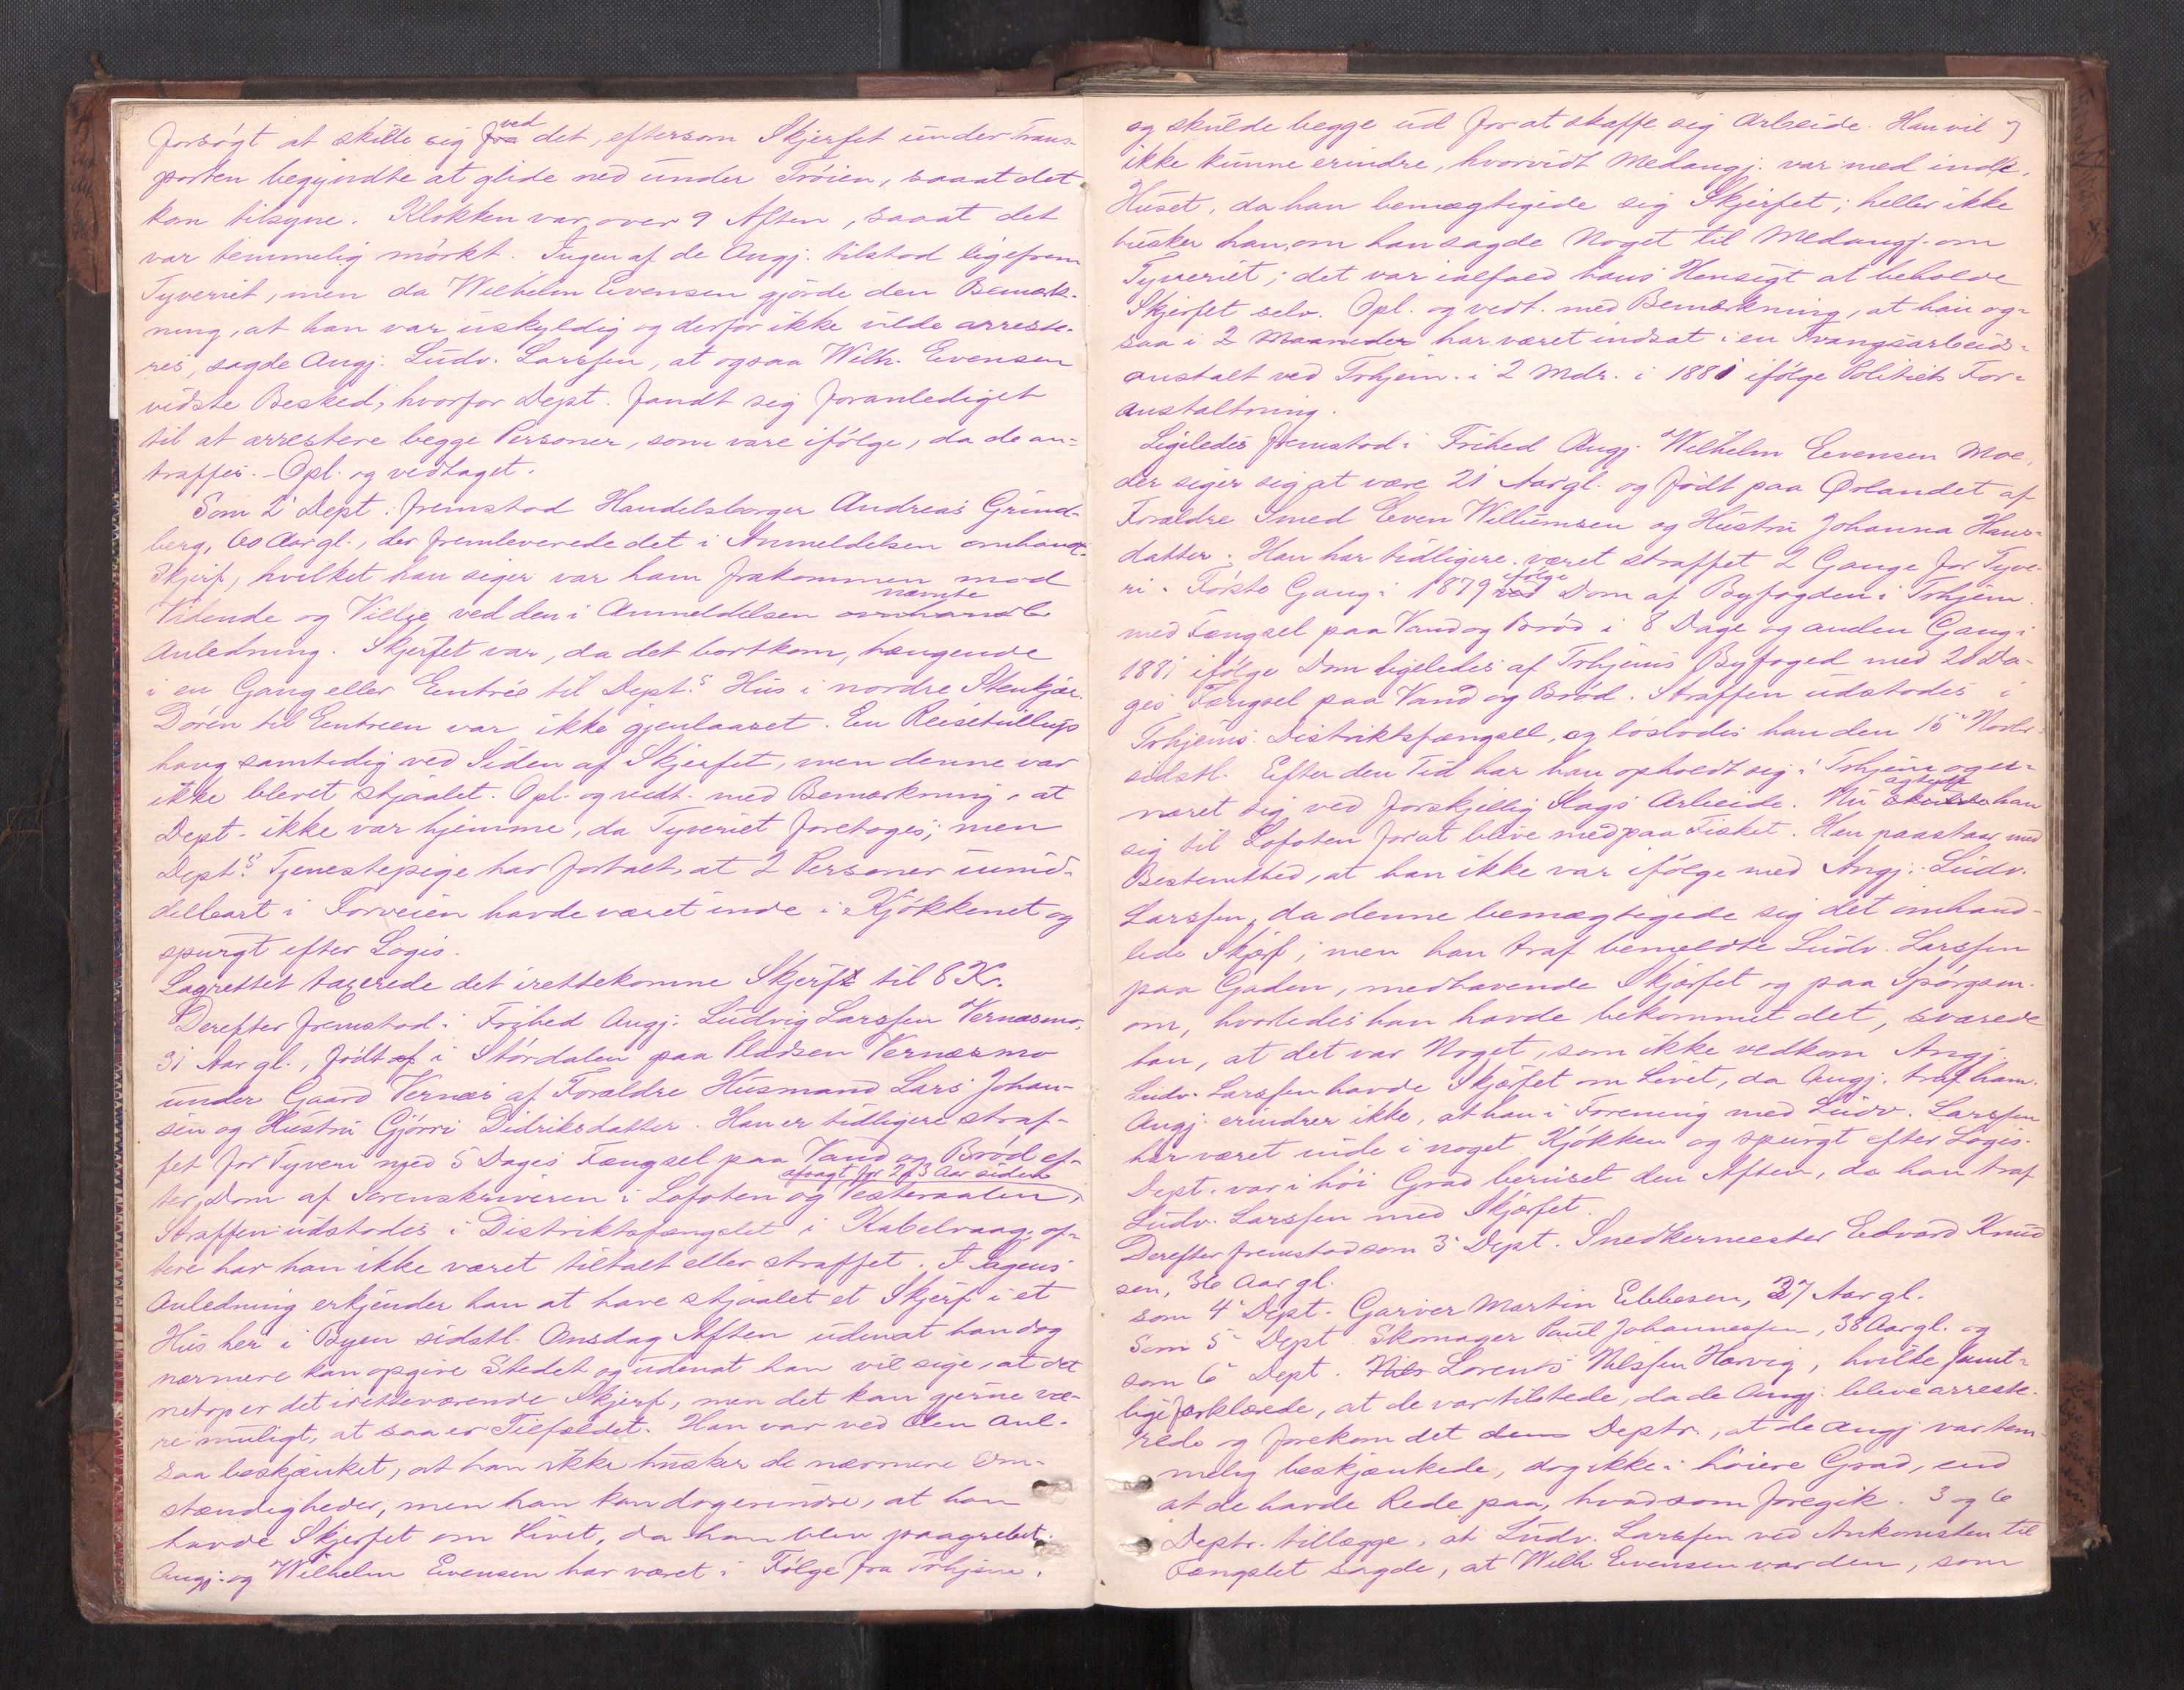 forsøgt at skille sig fra ved det, eftersom Skjerfet under Trans-
porten begyndte at glide ned under Trøien, saaat det
kom tilsyne. Klokken var over 9 Aften, saaat det
var temmelig mørkt. Ingen af de Angj. tilstod ligefrem
Tyveriet, men da Wilhelm Evensen gjorde den Bemærk-
ning, at han var uskyldig og derfor ikke vilde arreste-
res, sagde Angj. Ludv. Larssen, at ogsaa Wilh. Evensen
vidste Besked, hvorfor Dept. fandt sig foranlediget
til at arrestere begge Personer, som vare ifølge, da de an-
traffes. Opl. og vedtaget.
Som 2 Dept. fremstod Handelsborger Andreas Grind-
berg, 60 Aar gl., der fremleverede det i Anmeldelsen omhandl.
Skjerf, hvilket han siger var ham frakommen mod
Vidende og Villie ved den i Anmeldelsen omhandle nævnte
Anledning. Skjerfet var, da det bortkom, hængende
i en Gang eller Entrée til Dept.s Hus i nordre Stenkjær.
Døren til Entreen var ikke gjenlaaset. En Reisetullup
hang samtidig ved Siden af Skjerfet, men denne var
ikke blevet stjaalet. Opl. og vedt. med Bemærkning, at
Dept. ikke var hjemme, da Tyveriet foretoges; men
Dept.s Tjenestepige har fortalt, at 2 Personer umid-
delbart i Forveien havde været inde i Kjøkkenet og
spurgt efter Logis.
Lagrettet taxerede det irettekomne Skjerf til 8 Kr.
Derefter fremstod i Frihed Angj. Ludvig Larssen Vernæsmo,
31 Aar gl., født af i Størdalen paa Pladsen Vernæsmo
under Gaard Vernæs af Forældre Husmand Lars Johan-
sen og Hustru Gjørri Didriksdatter. Han er tidligere straf-
fet for Tyveri med 5 Dages Fængsel paa Vand og Brød ef-
ter Dom af Sorenskriveren i Lofoten og Vesteraalen, afsagt for 2 a 3 Aar siden
Straffen udstodes i Distriktsfængslet i Kabelvaag; of-
tere har han ikke været tiltalt eller straffet. I Sagens
Anledning erkjender han at have stjaalet et Skjerf i et
Hus her i Byen sidstl. Onsdag Aften udenat han dog
nærmere kan opgive Stedet og udenat han vil sige, at det
netop er det iretteværende Skjerf, men det kan gjerne væ-
re muligt, at saa er Tilfældet. Han var ved den Anl.
saa beskjænket, at han ikke husker de nærmere Om-
stændigheder, men han kan dog erindre, at han
havde Skjerfet om Livet, da han blev paagrebet.
Angj. og Wilhelm Evensen har været i Følge fra Trhjem,
og skulde begge ud for at skaffe sig Arbeide. Han vil
ikke kunne erindre, hvorvidt Medangj. var med inde i
Huset, da han bemægtigede sig Skjerfet; heller ikke
husker han, om han sagde Noget til Medangj. om
Tyveriet; det var ialfald hans Hensigt at beholde
Skjerfet selv. Opl. og vedt. med Bemærkning, at han og-
saa i 2 Maaneder har været indsat i en Tvangsarbeids-
anstalt ved Trhjem. i 2 Mdr. i 1881 ifølge Politiets For-
anstaltning.
Ligeledes fremstod i Frihed Angj. Wilhelm Evensen Moe,
der siger sig at være 21 Aar gl. og født paa Ørlandet af
Forældre Smed Even Willumsen og Hustru Johanna Hans-
datter. Han har tidligere været straffet 2 Gange for Tyve-
ri. Første Gang i 1879 ved ifølge Dom af Byfogden i Trhjem.
med Fængsel paa Vand og Brød i 8 Dage og anden Gang i
1881 ifølge Dom ligeledes af Trhjems Byfoged med 20 Da-
ges Fængsel paa Vand og Brød. Straffen udstodes i
Trhjems Distriktsfængsel, og løslodes han den 15 Novbr.
sidstl. Efter den Tid har han opholdt sig i Trhjem og er-
næret sig ved forskjellig Slags Arbeide. Nu skulde agtede han
sig til Lofoten forat blive med paa Fisket. Han paastaar med
Bestemthed, at han ikke var ifølge med Angj. Ludv.
Larssen, da denne bemægtigede sig det omhand-
lede Skjærf; men han traf bemeldte Ludv. Larssen
paa Gaden, medhavende Skjærfet og paa Spørgsm.
om, hvorledes han havde bekommet det, svarede
han, at det var Noget, som ikke vedkom Angj.
Ludv. Larssen havde Skjærfet om Livet, da Angj. traf ham.
Angj. erindrer ikke, at han i Forening med Ludv. Larssen
har været inde i noget Kjøkken og spurgt efter Logis.
Dept. var i høi Grad beruset den Aften, da han traf
Ludv. Larssen med Skjærfet.
Derefter fremstod som 3 Dept. Snedkermester Edvard Knud
sen, 36 Aar gl.
som 4 Dept. Garver Martin Ebbesen, 37 Aar gl.
Som 5 Dept. Skomager Paul Johannessen, 38 Aar gl. og
som 6 Dept. Nils Lorents Nilssen Hervig, hvilke samt-
lige forklarede, at de var tilstede, da de Angj. bleve arreste-
rede og forekom det dem Deptr., at de Angj var tem-
melig beskjænkede, dog ikke i høiere Grad, end
at de havde Rede paa, hvad som foregik. 3 og 6
Deptr. tillægge, at Ludv. Larssen ved Ankomsten til
Fængslet sagde, at Wilh Evensen var den, som